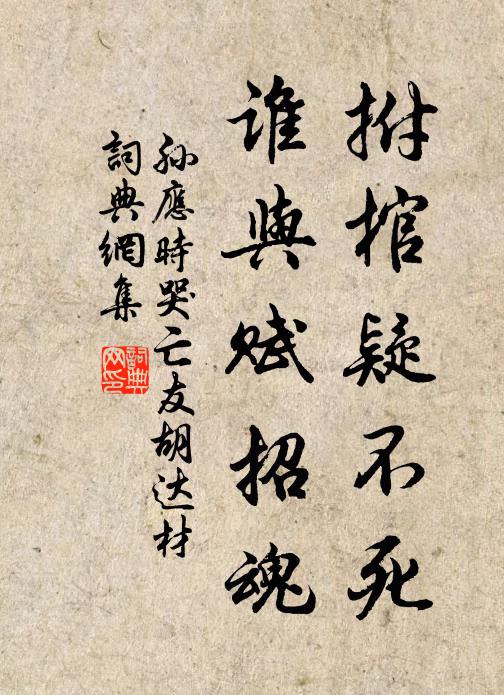 拊棺疑不死
誰與賦招魂
孙應時哭亡友胡达材
詞典網集
詞典
网印